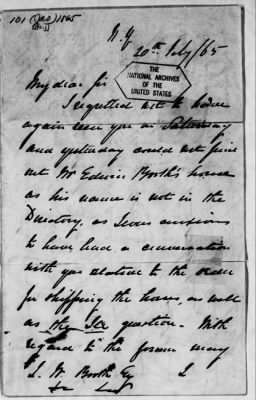 101 (JAO) 1865
N.Y
20th July/65
THE
NATIONAL ARCHIVES
OF THE
UNITED STATES
My dear Sir
I regretted not to have
again seen you on Saturday
and yesterday could not find
out Mr Edwin Booth's house
as his name is not in the
Directory, as I was anxious
to have had a conversation
with you relative to the order
for shipping the horses, as well
as the Ice question. With
regard to the former may
J. W. Booth Esq I